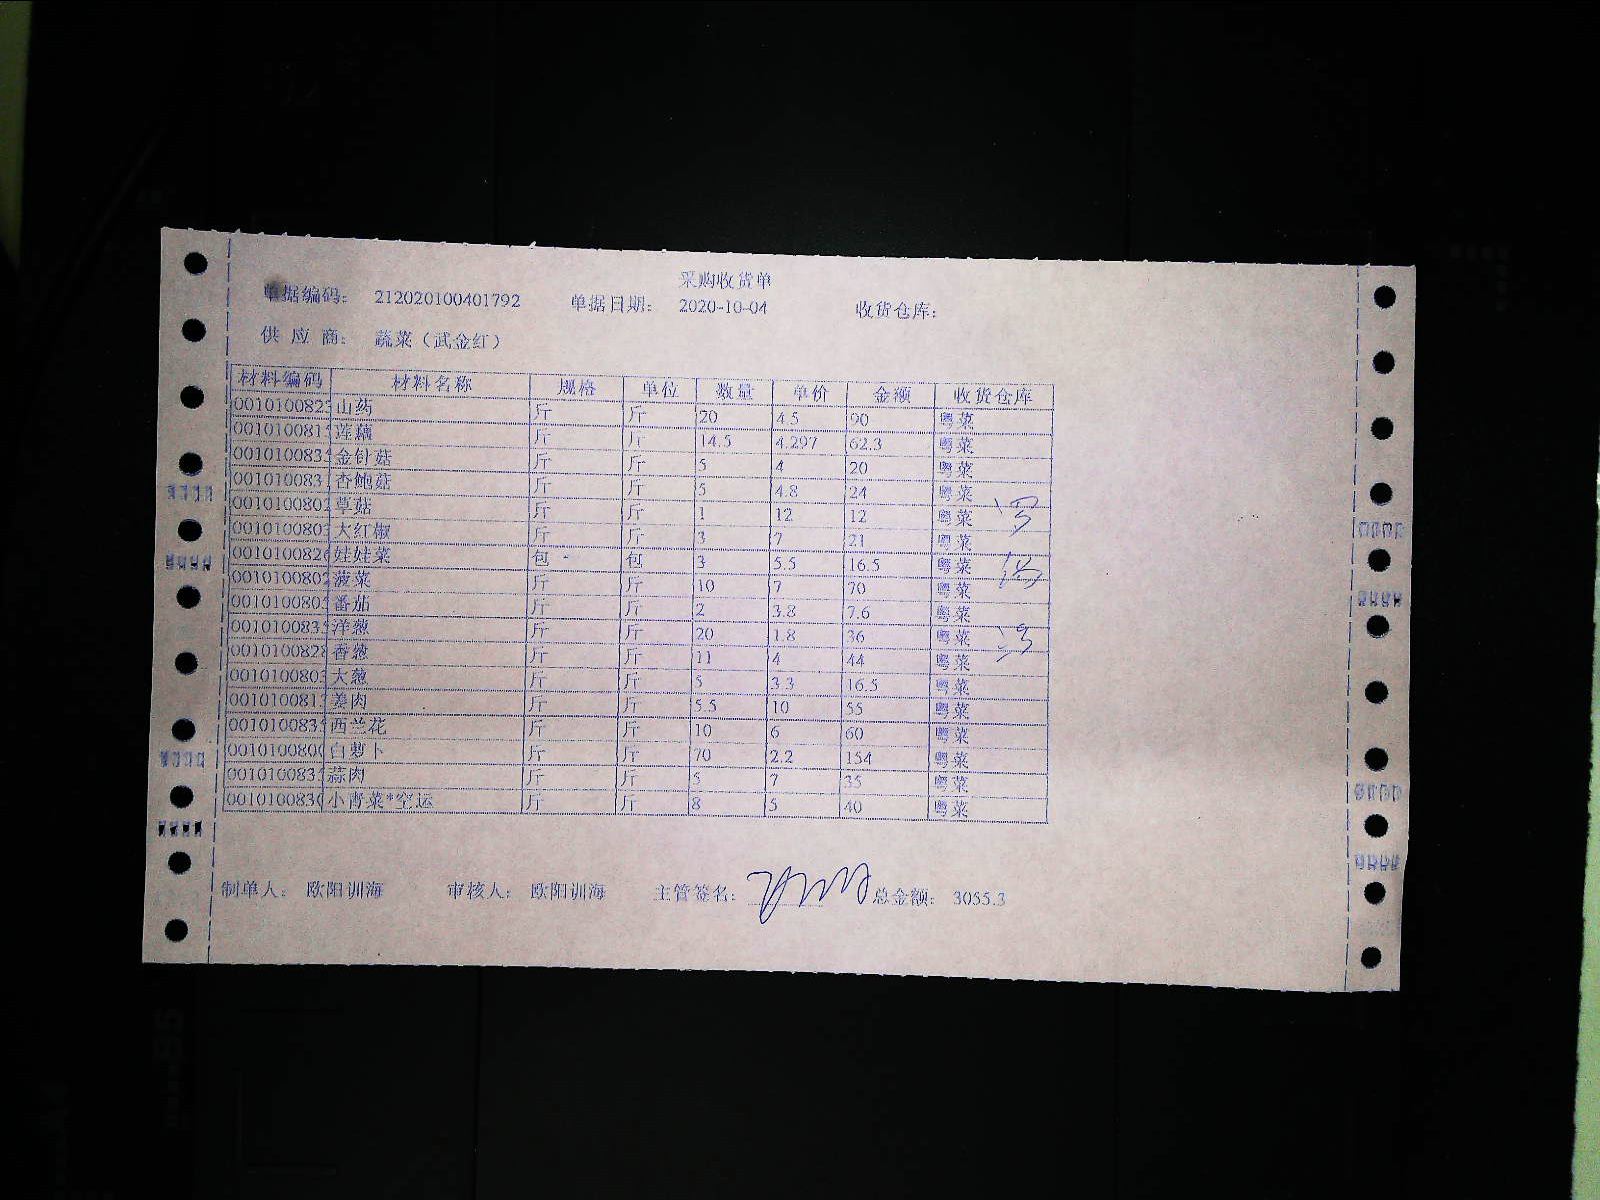 采购收货单
单据编码： 212020100401792 单据日期： 2020-10-04 收货仓库：
供 应 商： 蔬菜（武金红）
材料编码 材料名称 规格 单位 数量 单价 金额 收货仓库
001010082 山药 斤 斤 20 4.5 90 粤菜
001010081 莲藕 斤 斤 14.5 4.297 62.3 粤菜
001010083 金针菇 斤 斤 5 4 20 粤菜
001010083 杏鲍菇 斤 斤 5 4.8 24 粤菜
001010080 草菇 斤 斤 1 12 12 粤菜
001010080 大红椒 斤 斤 3 7 21 粤菜
001010082 娃娃菜 包 包 3 5.5 16.5 粤菜
001010080 菠菜 斤 斤 10 7 70 粤菜
001010080 番茄 斤 斤 2 3.8 7.6 粤菜
001010083 洋葱 斤 斤 20 1.8 36 粤菜
001010082 香葱 斤 斤 11 4 44 粤菜
001010080 大葱 斤 斤 5 3.3 16.5 粤菜
001010081 姜肉 斤 斤 5.5 10 55 粤菜
001010083 西兰花 斤 斤 10 6 60 粤菜
001010080 白萝卜 斤 斤 70 2.2 154 粤菜
001010083 蒜肉 斤 斤 5 7 35 粤菜
001010083 小青菜*空运 斤 斤 8 5 40 粤菜
制单人： 欧阳训海 审核人： 欧阳训海 主管签名： 总金额： 3055.3